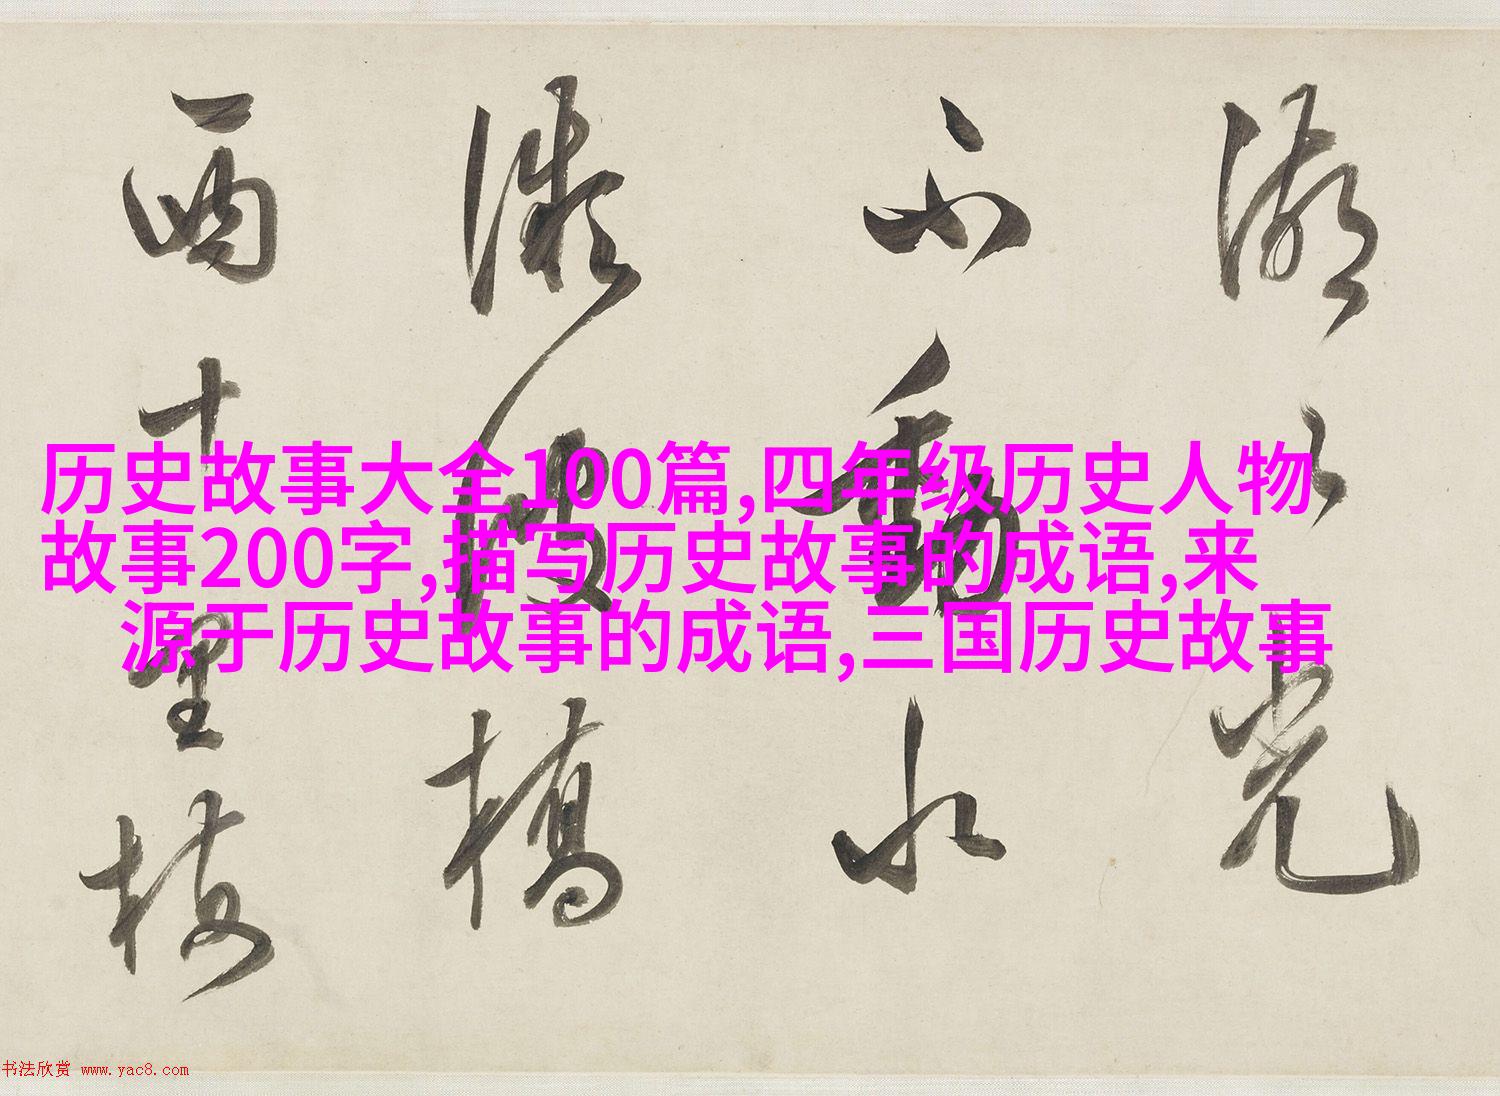 历史故事大全100篇,四年级历史人物
故事200字,描写历史故事的成语,来
源于历史故事的成语,三国历史故事
湖光
不動水
波橋
西十里梅
书法欣赏 www.yac8.com